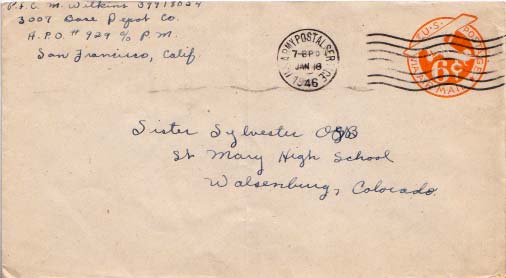 P.f.c. M. Wilkins 39918624
3007 Base Depot Co.
A.P.O. # 929 % P.M.
San Francisco, Calif.
U.S. ARMY POSTAL SERVICE
JAN 18
1946
U.S. POSTAGE
6¢
VIA AIR MAIL
Sister Sylvester OSB
St Mary High School
Walsenburg, Colorado.